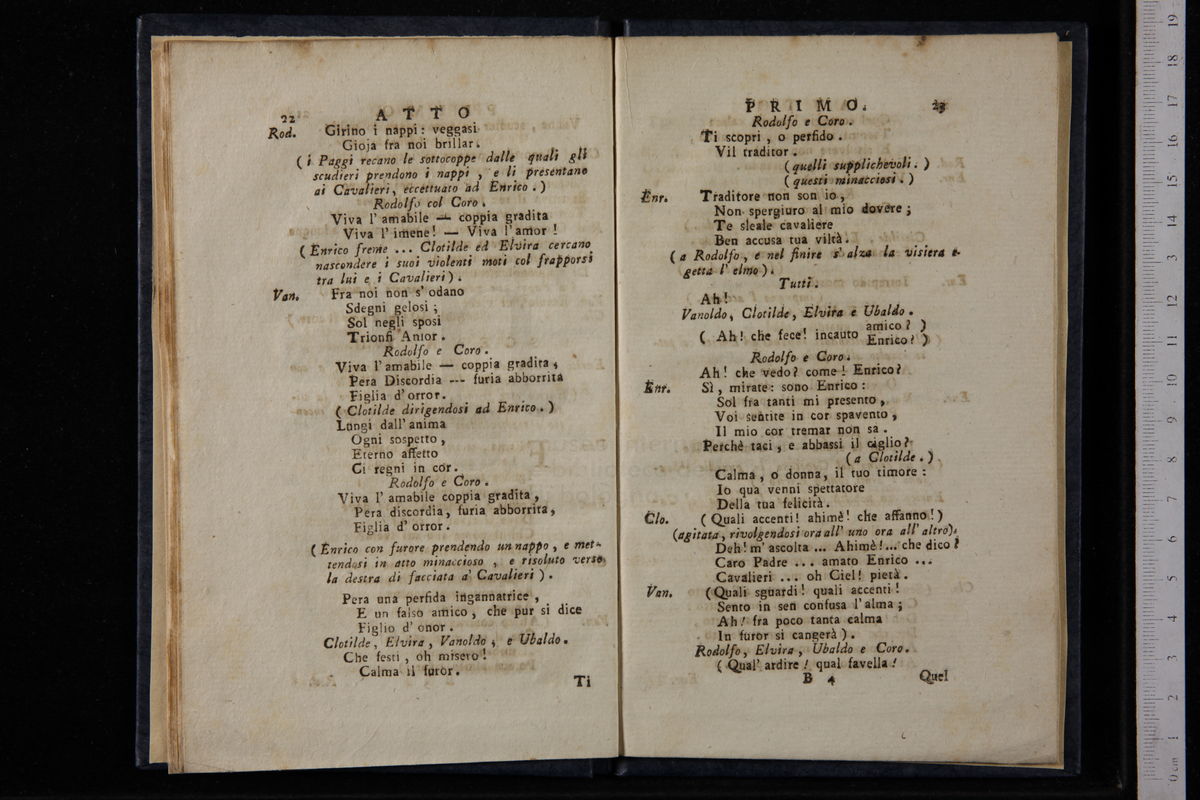 22 ATTO
Rod. Girino i nappi: veggasi
Gioja fra noi brillar.
(i Paggi recano le sottocoppe dalle quali gli
scudieri prendono i nappi, e li presentano
ai Cavalieri, eccettuato ad Enrico.)
Rodolfo col Coro.
Viva l'amabile — coppia gradita
Viva l'imene! — Viva l'amor!
(Enrico freme ... Clotilde ed Elvira cercano
nascondere i suoi violenti moti col frapporsi
tra lui e i Cavalieri).
Van. Fra noi non s'odano
Sdegni gelosi;
Sol negli sposi
Trionfi Amor.
Rodolfo e Coro.
Viva l'amabile — coppia gradita,
Pera Discordia --- furia abborrita
Figlia d'orror.
(Clotilde dirigendosi ad Enrico.)
Lungi dall'anima
Ogni sospetto,
Eterno affetto
Ci regni in cor.
Rodolfo e Coro.
Viva l'amabile coppia gradita,
Pera discordia, furia abborrita,
Figlia d'orror.
(Enrico con furore prendendo un nappo, e met-
tendosi in atto minaccioso, e risoluto verso
la destra di facciata a' Cavalieri).
Pera una perfida ingannatrice,
E un falso amico, che pur si dice
Figlio d'onor.
Clotilde, Elvira, Vanoldo, e Ubaldo.
Che festi, oh misero!
Calma il furor.
Ti
PRIMO. 23
Rodolfo e Coro.
Ti scopri, o perfido.
Vil traditor.
(quelli supplichevoli.)
(questi minacciosi.)
Enr. Traditore non son io,
Non spergiuro al mio dovere;
Te sleale cavaliere
Ben accusa tua viltà.
(a Rodolfo, e nel finire s'alza la visiera e
getta l'elmo).
Tutti.
Ah!
Vanoldo, Clotilde, Elvira e Ubaldo.
(Ah! che fece! incauto amico? )
Enrico? )
Rodolfo e Coro.
Ah! che vedo? come! Enrico?
Enr. Sì, mirate: sono Enrico:
Sol fra tanti mi presento,
Voi sentite in cor spavento,
Il mio cor tremar non sa.
Perchè taci, e abbassi il ciglio?
(a Clotilde.)
Calma, o donna, il tuo timore:
Io qua venni spettatore
Della tua felicità.
Clo. (Quali accenti! ahimè! che affanno!)
(agitata, rivolgendosi ora all'uno ora all'altro).
Deh! m'ascolta ... Ahimè!... che dico?
Caro Padre ... amato Enrico ...
Cavalieri ... oh Ciel! pietà.
Van. (Quali sguardi! quali accenti!
Sento in sen confusa l'alma;
Ah! fra poco tanta calma
In furor si cangerà).
Rodolfo, Elvira, Ubaldo e Coro.
(Qual' ardire! qual favella!
B 4 Quel
0 cm 1 2 3 4 5 6 7 8 9 10 11 12 13 14 15 16 17 18 19